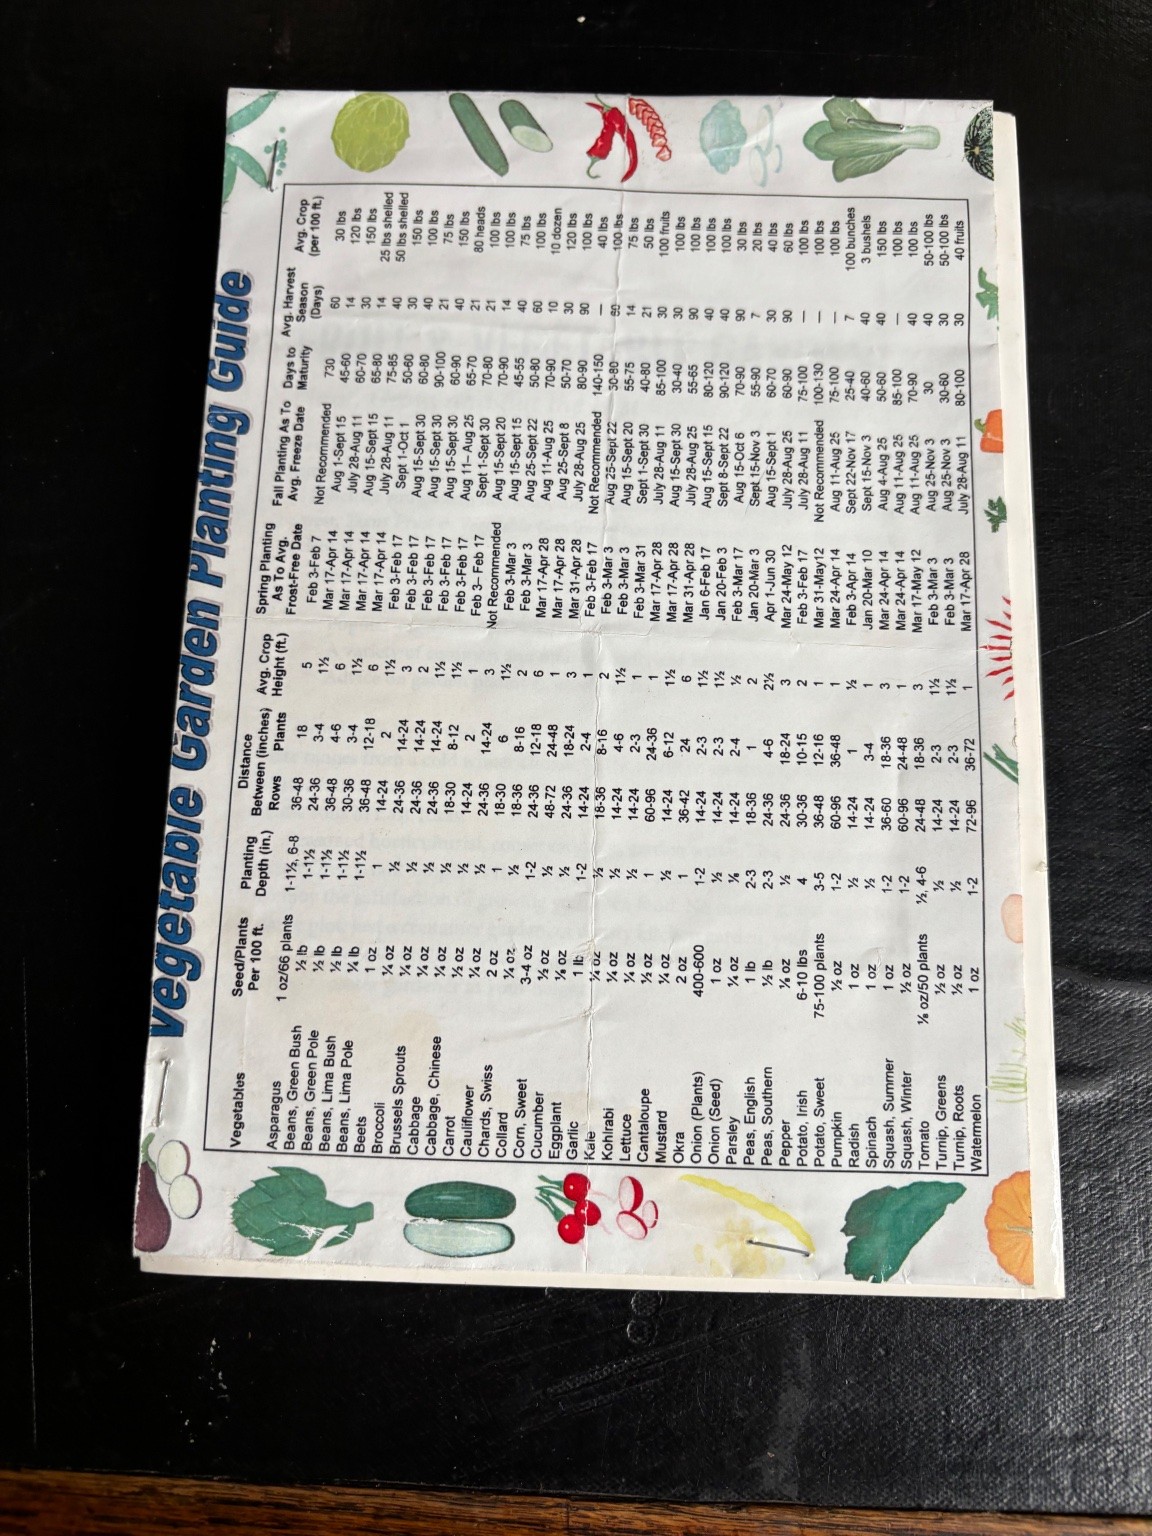 Vegetable Garden Planting Guide
Vegetables Seed/Plants Per 100 ft. Planting Depth (in.) Distance Between (inches) Rows Plants Avg. Crop Height (ft.) Spring Planting As To Avg. Frost-Free Date Fall Planting As To Avg. Freeze Date Days to Maturity Avg. Harvest Season (Days) Avg. Crop (per 100 ft.)
Asparagus 1 oz/66 plants 1-1½, 6-8 36-48 18 5 Feb 3-Feb 7 Not Recommended 730 60 30 lbs
Beans, Green Bush ½ lb 1-1½ 24-36 3-4 1½ Mar 17-Apr 14 Aug 1-Sept 15 45-60 14 120 lbs
Beans, Green Pole ½ lb 1-1½ 36-48 4-6 6 Mar 17-Apr 14 July 28-Aug 11 60-70 30 150 lbs
Beans, Lima Bush ½ lb 1-1½ 30-36 3-4 1½ Mar 17-Apr 14 Aug 15-Sept 15 65-80 14 25 lbs shelled
Beans, Lima Pole ¼ lb 1-1½ 36-48 12-18 6 Mar 17-Apr 14 July 28-Aug 11 75-85 40 50 lbs shelled
Beets 1 oz 1 14-24 2 1½ Feb 3-Feb 17 Sept 1-Oct 1 50-60 30 150 lbs
Broccoli ¼ oz ½ 24-36 14-24 3 Feb 3-Feb 17 Aug 15-Sept 30 60-80 40 100 lbs
Brussels Sprouts ¼ oz ½ 24-36 14-24 2 Feb 3-Feb 17 Aug 15-Sept 30 90-100 21 75 lbs
Cabbage ¼ oz ½ 24-36 14-24 1½ Feb 3-Feb 17 Aug 15-Sept 30 60-90 40 150 lbs
Cabbage, Chinese ¼ oz ½ 18-30 8-12 1½ Feb 3-Feb 17 Aug 11– Aug 25 65-70 21 80 heads
Carrot ½ oz ½ 14-24 2 1 Feb 3– Feb 17 Sept 1-Sept 30 70-80 21 100 lbs
Cauliflower ¼ oz ½ 24-36 14-24 3 Not Recommended Aug 15-Sept 20 70-90 14 100 lbs
Chards, Swiss 2 oz 1 18-30 6 1½ Feb 3-Mar 3 Aug 15-Sept 15 45-55 40 75 lbs
Collard ¼ oz ½ 18-36 8-16 2 Feb 3-Mar 3 Aug 25-Sept 22 50-80 60 100 lbs
Corn, Sweet 3-4 oz 1-2 24-36 12-18 6 Mar 17-Apr 28 Aug 11-Aug 25 70-90 10 10 dozen
Cucumber ½ oz ½ 48-72 24-48 1 Mar 17-Apr 28 Aug 25-Sept 8 50-70 30 120 lbs
Eggplant ⅛ oz ½ 24-36 18-24 3 Mar 31-Apr 28 July 28-Aug 25 80-90 90 100 lbs
Garlic 1 lb 1-2 14-24 2-4 1 Feb 3-Feb 17 Not Recommended 140-150 — 40 lbs
Kale ¼ oz ½ 18-36 8-16 2 Feb 3-Mar 3 Aug 25-Sept 22 30-80 60 100 lbs
Kohlrabi ¼ oz ½ 14-24 4-6 1½ Feb 3-Mar 3 Aug 15-Sept 20 55-75 14 75 lbs
Lettuce ¼ oz ½ 14-24 2-3 1 Feb 3-Mar 31 Sept 1-Sept 30 40-80 21 50 lbs
Cantaloupe ½ oz 1 60-96 24-36 1 Mar 17-Apr 28 July 28-Aug 11 85-100 30 100 fruits
Mustard ¼ oz ½ 14-24 6-12 1½ Mar 17-Apr 28 Aug 15-Sept 30 30-40 30 100 lbs
Okra 2 oz 1 36-42 24 6 Mar 31-Apr 28 July 28-Aug 25 55-65 90 100 lbs
Onion (Plants) 400-600 1-2 14-24 2-3 1½ Jan 6-Feb 17 Aug 15-Sept 15 80-120 40 100 lbs
Onion (Seed) 1 oz ½ 14-24 2-3 1½ Jan 20-Feb 3 Sept 8-Sept 22 90-120 40 100 lbs
Parsley ¼ oz ⅛ 14-24 2-4 ½ Feb 3-Mar 17 Aug 15-Oct 6 70-90 90 30 lbs
Peas, English 1 lb 2-3 18-36 1 2 Jan 20-Mar 3 Sept 15-Nov 3 55-90 7 20 lbs
Peas, Southern ½ lb 2-3 24-36 4-6 2½ Apr 1-Jun 30 Aug 15-Sept 1 60-70 30 40 lbs
Pepper ⅛ oz ½ 24-36 18-24 3 Mar 24-May 12 July 28-Aug 25 60-90 90 60 lbs
Potato, Irish 6-10 lbs 4 30-36 10-15 2 Feb 3-Feb 17 July 28-Aug 11 75-100 — 100 lbs
Potato, Sweet 75-100 plants 3-5 36-48 12-16 1 Mar 31-May12 Not Recommended 100-130 — 100 lbs
Pumpkin ½ oz 1-2 60-96 36-48 1 Mar 24-Apr 14 Aug 11-Aug 25 75-100 — 100 lbs
Radish 1 oz ½ 14-24 1 ½ Feb 3-Apr 14 Sept 22-Nov 17 25-40 7 100 bunches
Spinach 1 oz ½ 14-24 3-4 1 Jan 20-Mar 10 Sept 15-Nov 3 40-60 40 3 bushels
Squash, Summer 1 oz 1-2 36-60 18-36 3 Mar 24-Apr 14 Aug 4-Aug 25 50-60 40 150 lbs
Squash, Winter ½ oz 1-2 60-96 24-48 1 Mar 24-Apr 14 Aug 11-Aug 25 85-100 — 100 lbs
Tomato ⅛ oz/50 plants ½, 4-6 24-48 18-36 3 Mar 17-May 12 Aug 11-Aug 25 70-90 40 100 lbs
Turnip, Greens ½ oz ½ 14-24 2-3 1½ Feb 3-Mar 3 Aug 25-Nov 3 30 40 50-100 lbs
Turnip, Roots ½ oz ½ 14-24 2-3 1½ Feb 3-Mar 3 Aug 25-Nov 3 30-60 30 50-100 lbs
Watermelon 1 oz 1-2 72-96 36-72 1 Mar 17-Apr 28 July 28-Aug 11 80-100 30 40 fruits